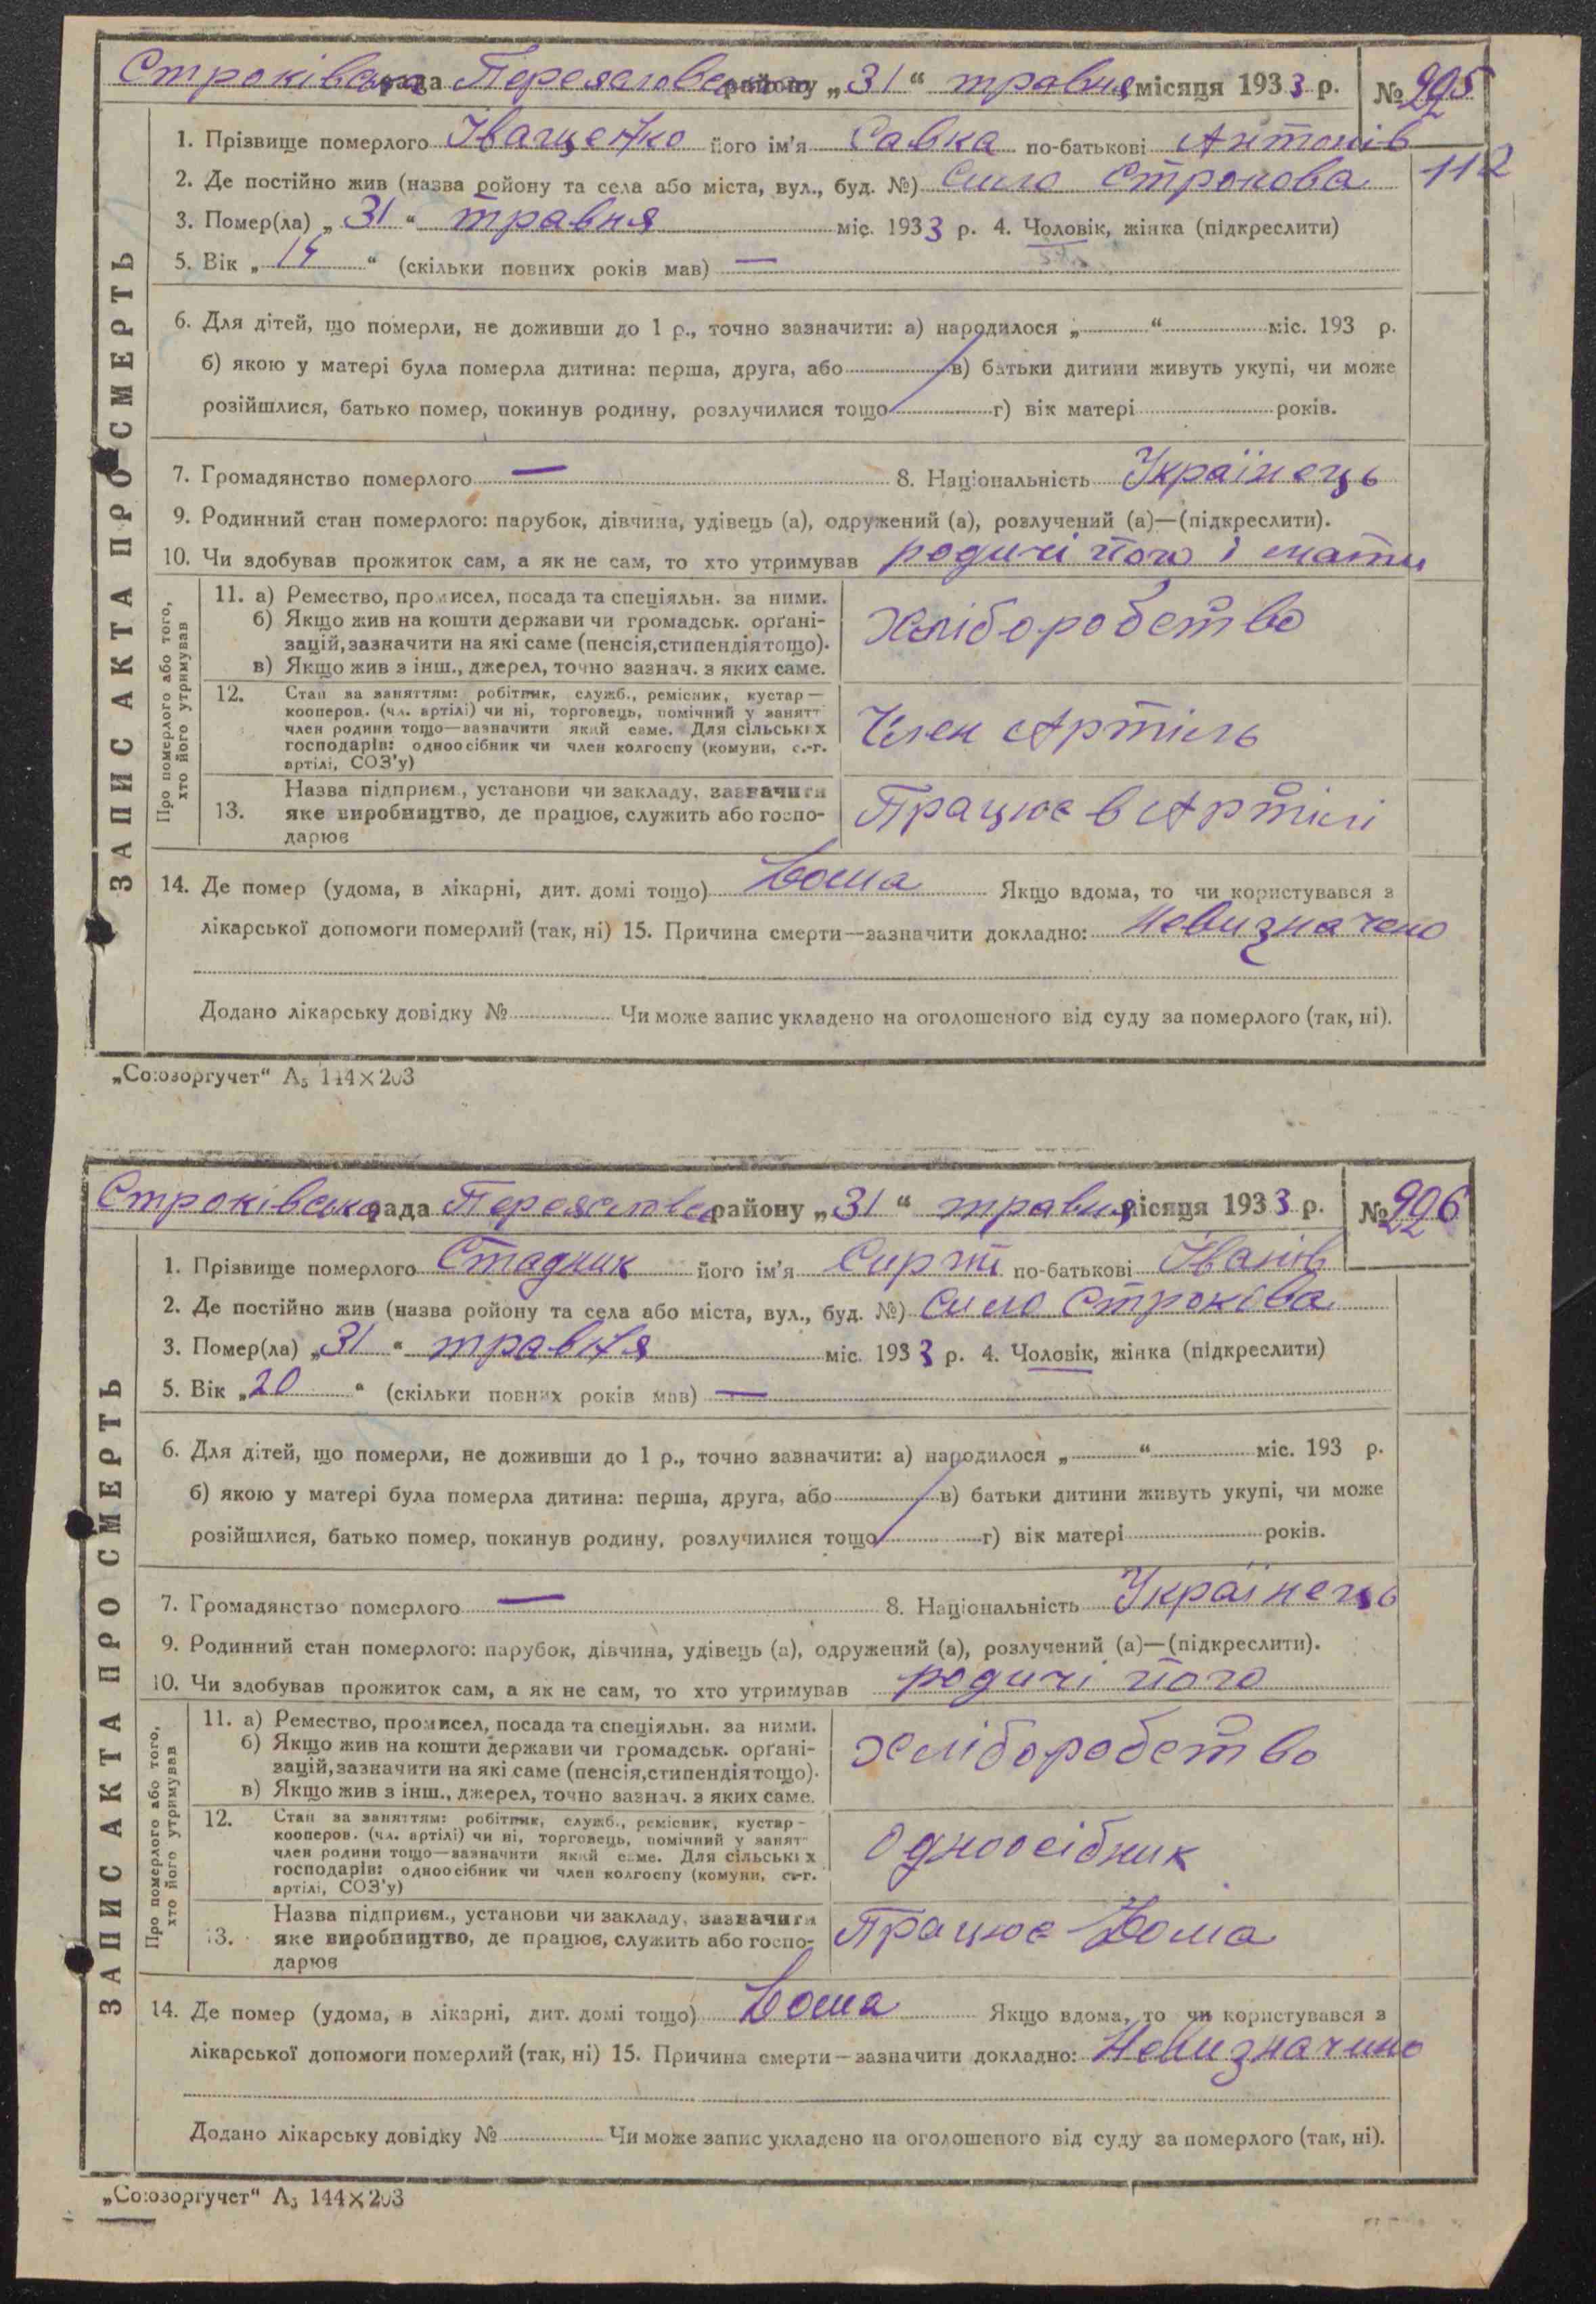 Строківська рада Переяславськ району „31“ травня місяця 1933 р. № 225
112
1. Прізвище померлого Іващенко його ім'я Савка по-батькові Антонів
2. Де постійно жив (назва ройону та села або міста, вул., буд. №) Село Строкова
3. Помер(ла) „31“ травня міс. 1933 р. 4. Чоловік, жінка (підкреслити)
5. Вік „ “ (скільки повних років мав) —
6. Для дітей, що померли, не доживши до 1 р., точно зазначити: а) народилося „ “ міс. 193 р.
б) якою у матері була померла дитина: перша, друга, або в) батьки дитини живуть укупі, чи може
розійшлися, батько помер, покинув родину, розлучилися тощо г) вік матері років.
7. Громадянство померлого — 8. Національність Українець
9. Родинний стан померлого: парубок, дівчина, удівець (а), одружений (а), розлучений (а)—(підкреслити).
10. Чи здобував прожиток сам, а як не сам, то хто утримував родичі його і мати
ЗАПИС АКТА ПРО СМЕРТЬ
Про померлого або того,
хто його утримував
11. а) Ремество, промисел, посада та спеціяльн. за ними.
б) Якщо жив на кошти держави чи громадськ. орґані-
зацій, зазначити на які саме (пенсія, стипендія тощо).
в) Якщо жив з інш., джерел, точно зазнач. з яких саме.
Хліборобство
12. Стан за заняттям: робітник, служб., ремісник, кустар—
кооперов. (чл. артілі) чи ні, торговець, помічний у занятт
член родини тощо—зазначити який саме. Для сільських
господарів: одноосібник чи член колгоспу (комуни, с.-г.
артілі, СОЗ'у)
Член Артіль
13. Назва підприєм., установи чи закладу, зазначити
яке виробництво, де працює, служить або госпо-
дарює
Працює в Артілі
14. Де помер (удома, в лікарні, дит. домі тощо) Дома Якщо вдома, то чи користувався з
лікарської допомоги померлий (так, ні) 15. Причина смерти—зазначити докладно: Невизначено
Додано лікарську довідку № Чи може запис укладено на оголошеного від суду за померлого (так, ні).
„Союзоргучет“ А5 144×203
Строківська рада Переяславс району „31“ травня місяця 1933 р. № 226
1. Прізвище померлого Стадник його ім'я по-батькові Іванів
2. Де постійно жив (назва ройону та села або міста, вул., буд. №) Село Строкова
3. Помер(ла) „31“ травня міс. 1933 р. 4. Чоловік, жінка (підкреслити)
5. Вік „20“ (скільки повних років мав) —
6. Для дітей, що померли, не доживши до 1 р., точно зазначити: а) народилося „ “ міс. 193 р.
б) якою у матері була померла дитина: перша, друга, або в) батьки дитини живуть укупі, чи може
розійшлися, батько помер, покинув родину, розлучилися тощо г) вік матері років.
7. Громадянство померлого — 8. Національність Українець
9. Родинний стан померлого: парубок, дівчина, удівець (а), одружений (а), розлучений (а)—(підкреслити).
10. Чи здобував прожиток сам, а як не сам, то хто утримував родичі його
ЗАПИС АКТА ПРО СМЕРТЬ
Про померлого або того,
хто його утримував
11. а) Ремество, промисел, посада та спеціяльн. за ними.
б) Якщо жив на кошти держави чи громадськ. орґані-
зацій, зазначити на які саме (пенсія, стипендія тощо).
в) Якщо жив з інш., джерел, точно зазнач. з яких саме.
Хліборобство
12. Стан за заняттям: робітник, служб., ремісник, кустар-
кооперов. (чл. артілі) чи ні, торговець, помічний у занят
член родини тощо—зазначити який саме. Для сільських
господарів: одноосібник чи член колгоспу (комуни, с.-г.
артілі, СОЗ'у)
Одноосібник
13. Назва підприєм., установи чи закладу, зазначити
яке виробництво, де працює, служить або госпо-
дарює
Працює Дома
14. Де помер (удома, в лікарні, дит. домі тощо) Дома Якщо вдома, то чи користувався з
лікарської допомоги померлий (так, ні) 15. Причина смерти—зазначити докладно: Невизначино
Додано лікарську довідку № Чи може запис укладено на оголошеного від суду за померлого (так, ні).
„Союзоргучет“ А5 144×203